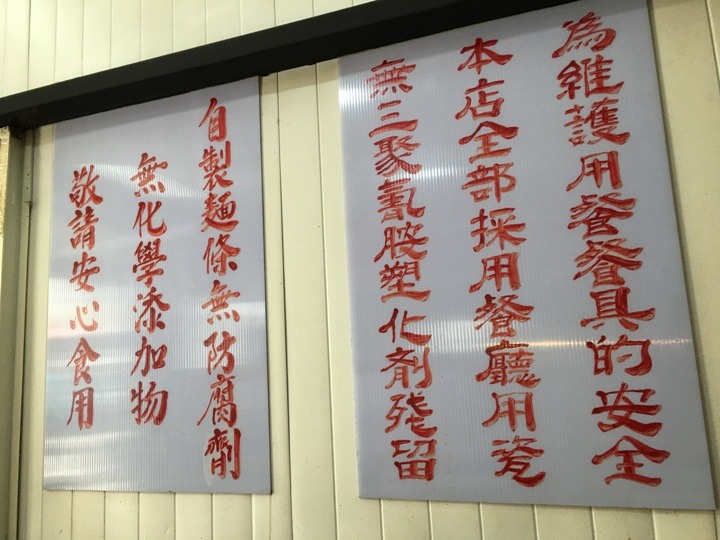 為維護用餐餐具的安全
本店全部採用餐廳用瓷
無三聚氰胺塑化剤残留
自製麵條無防腐劑
無化學添加物
敬請安心食用